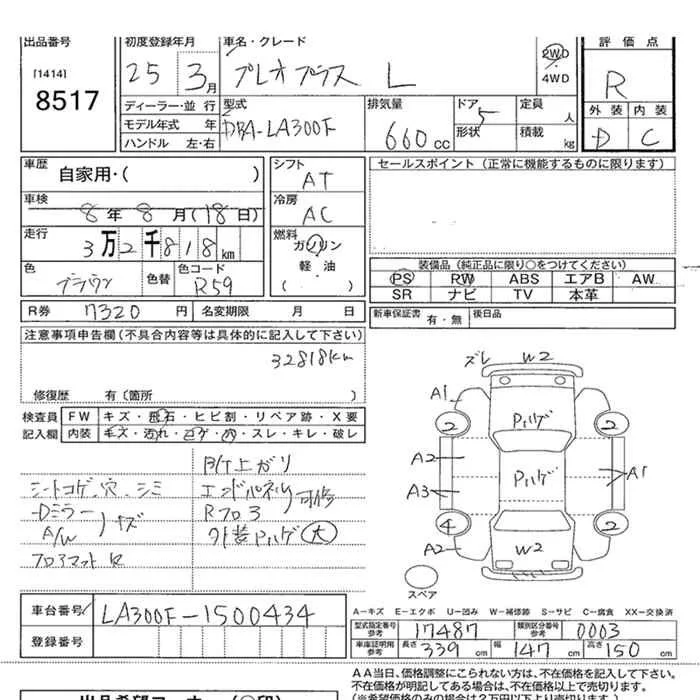 出品番号
[1414]
8517
初度登録年月
25 3月
車名・グレード
プレオプラス L
2WD
4WD
評価点
R
外装 内装
D C
ディーラー・並行
モデル年式 年
ハンドル 左・右
型式
DBA-LA300F
排気量
660cc
ドア 5
形状
定員 人
積載 kg
車歴
自家用・( )
車検
8年8月(18日)
走行
3万2千818km
色
ブラウン
色替
色コード
R59
シフト
AT
冷房
AC
燃料
ガソリン
軽・油
( )
セールスポイント(正常に機能するものに限ります)
装備品(純正品に限り○をつけてください)
PS RW ABS エアB AW
SR ナビ TV 本革
R券 7320円
名変期限 月 日
新車保証書 有・無
後日品
注意事項申告欄(不具合内容等は具体的に記入して下さい)
32818km
修復歴 有(箇所 )
検査員
記入欄
FW キズ・飛石・ヒビ割・リペア跡・X要
内装 キズ・汚れ・コゲ・穴・スレ・キレ・破レ
シートコゲ、穴、シミ
Dミラー
A/W
キズ
フロアマットR
B/T上がり
エンドパネル
Rフロア
外装Pハゲ 大
ズレ W2
A1
2
Pハゲ
2
A2
Pハゲ
A1
A3
4
2
A2
W2
スペア
A−キズ E−エクボ U−凹み W−補修跡 S−サビ C−腐食 XX−交換済
車台番号
LA300F-1500434
登録番号
型式指定番号
参考
17487
類別区分番号
参考
0003
車庫証明用
参考
長さ 339cm
幅 147cm
高さ 150cm
AA当日、価格調整にこられない方は、不在価格を記入して下さい。
不在価格が明記してある場合は、不在価格以上で売切ります。